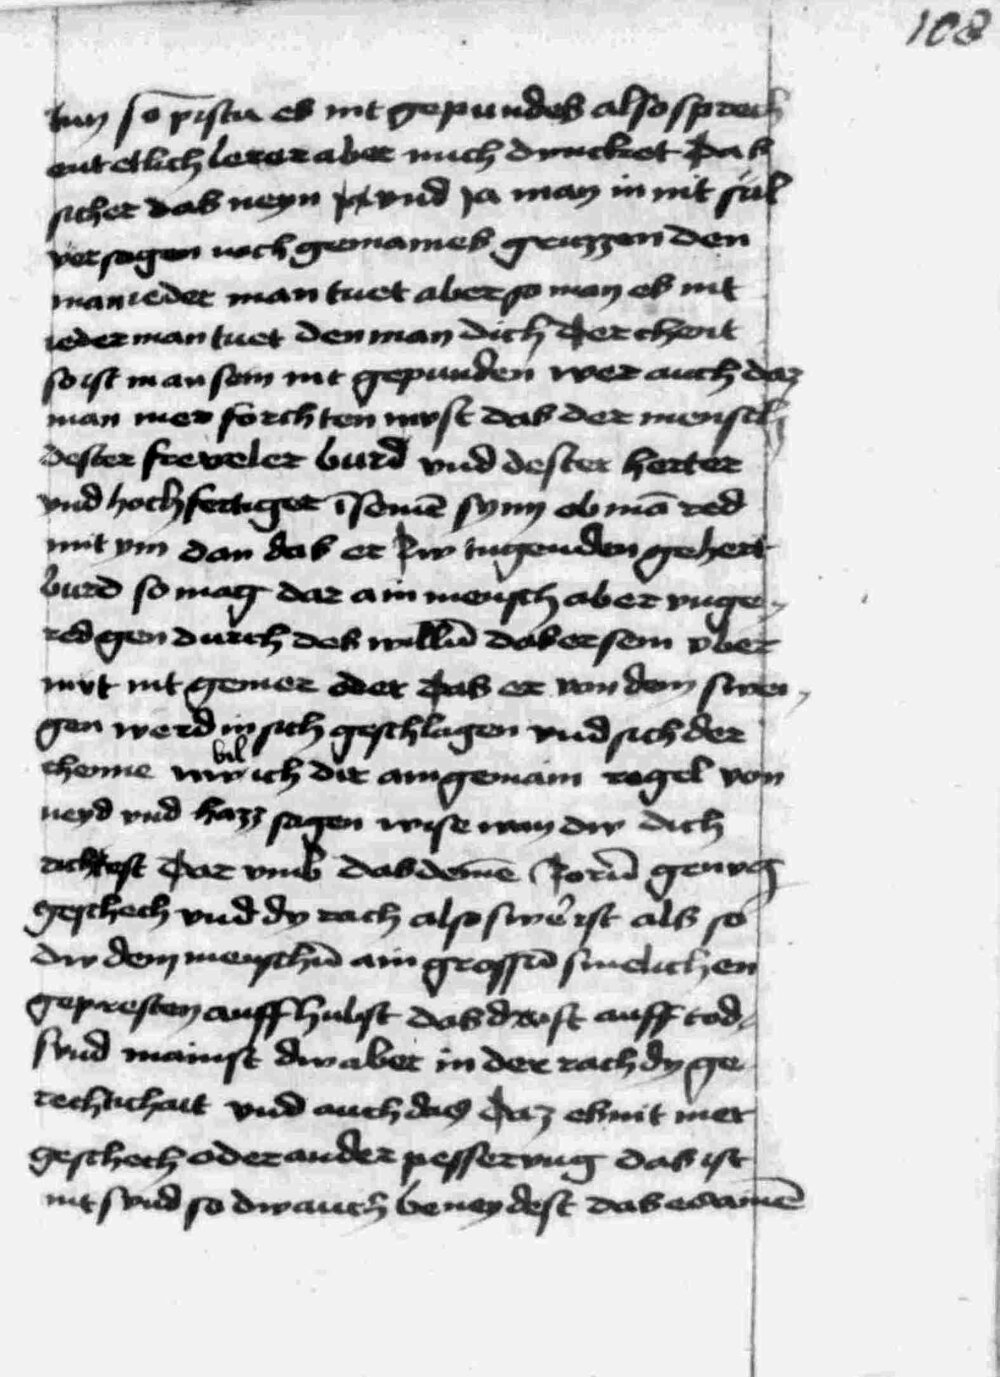 108
tun so pistu es nit gepunden also sprech
ent etlich lerer aber mich duncket das
sicher das neyn ja vnd ja man in nit sul
versagen noch gemaines gruzzen den
man ieder man tuet aber so man es nit
ieder man tuet den man dich derchent
so ist man sein nit gepunden wer auch daz
man mer forchten must das der mensch
dester freveler wurd vnd dester herter
vnd hochfertiger in seinē synn ob mā red
mit ym dan das er zw tugenden gechert
wurd so mag dar ain mensch aber vnge
red gen durch des willn̄ das er sein vber
mut nit gemer oder das er von dem swei
gen werd in sich geschlagen vnd sich der
chenne nw wil ich dir ain gemain regel von
neyd vnd hazz sagen wise wan dw dich
richtest dar vmb das deinē zorn̄ genug
geschech vnd dy rach also swer ist als so
dw dem menschn̄ ain grossn̄ smelichen
gepresten auff hubst das dw ist auff tod
sund mainst dw aber in der rach dy ge
rechtichait vnd auch das daz es nit mer
geschech oder ander pesserung das ist
nit sund so dw auch beneydest das